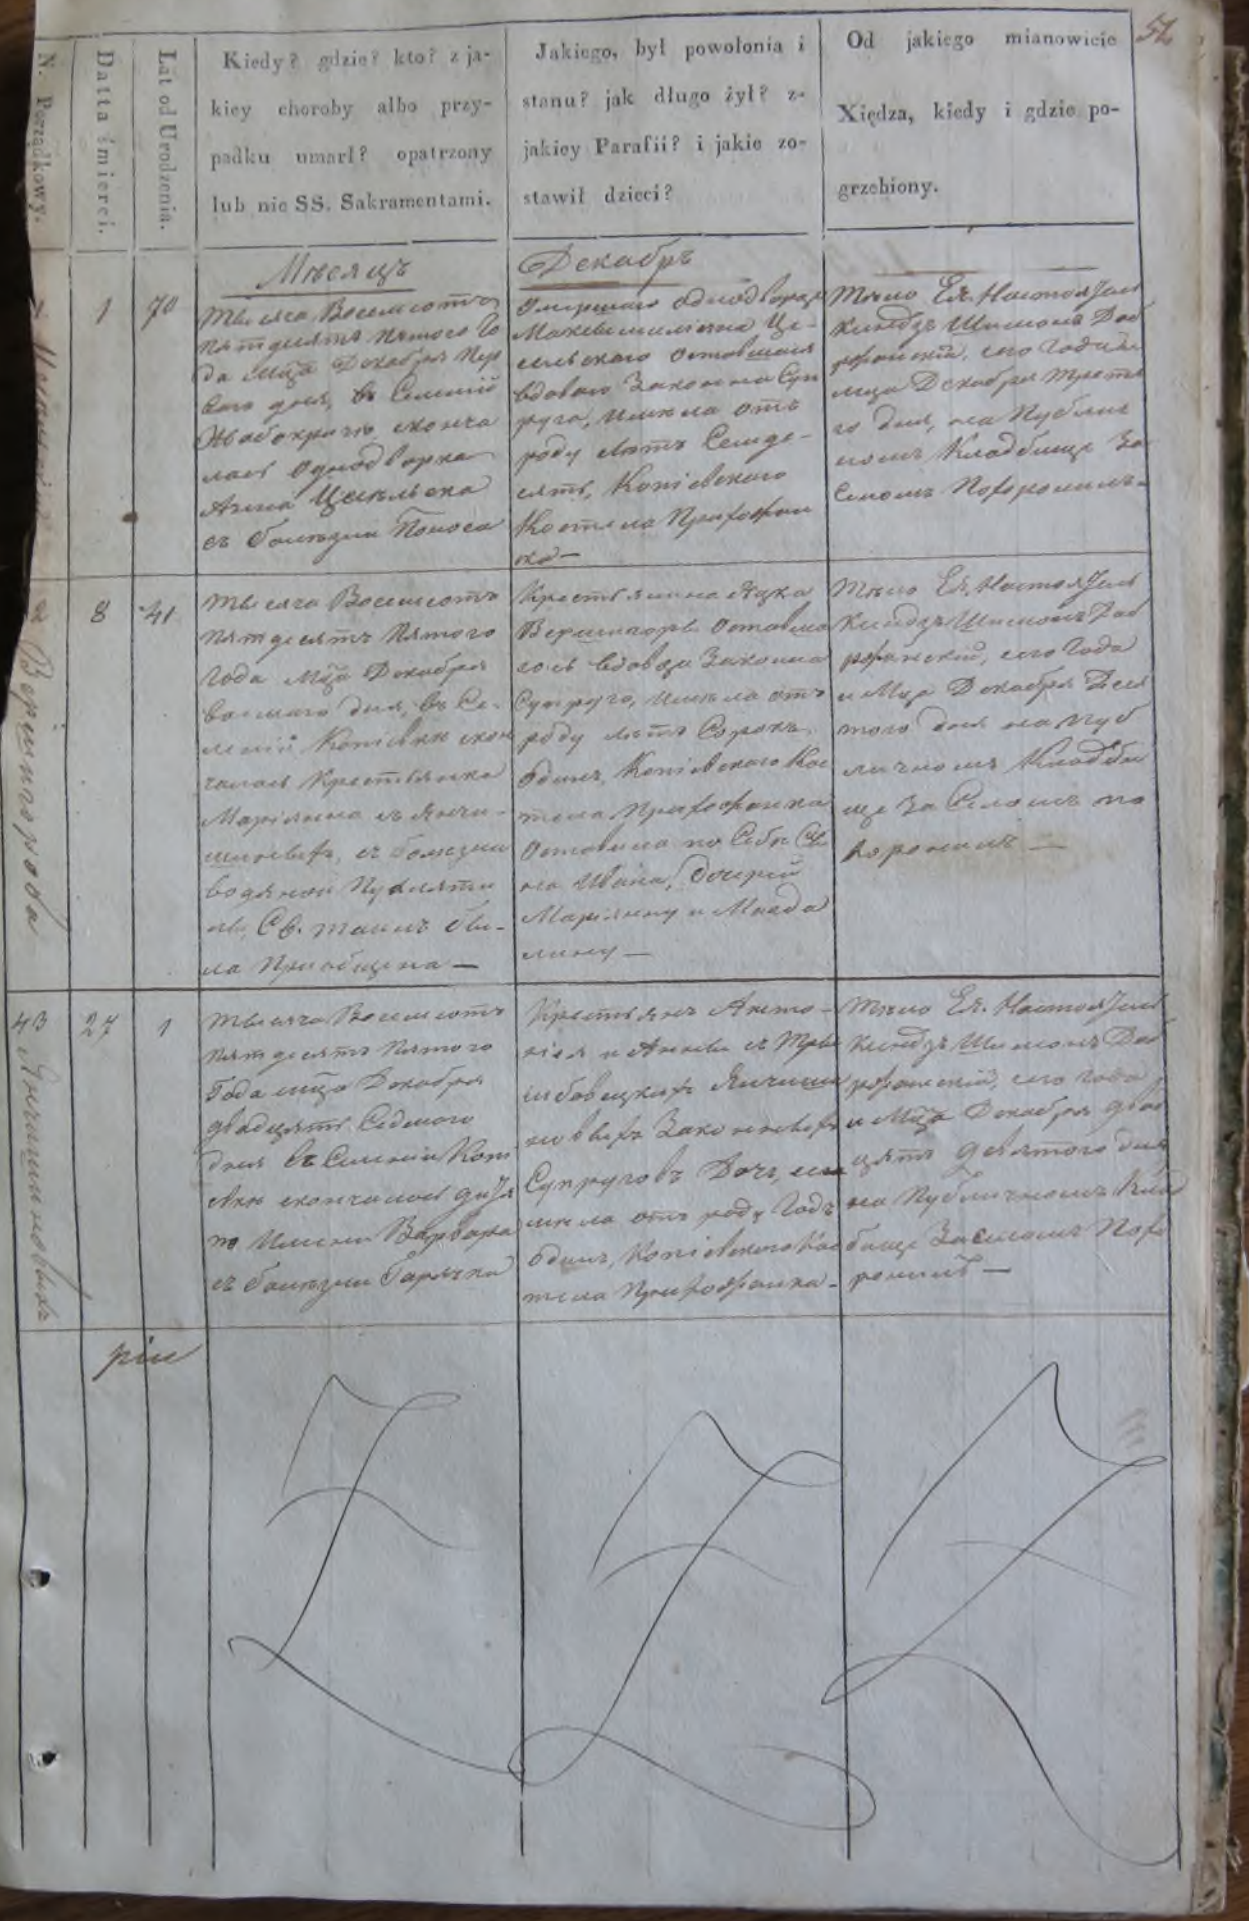 52
N. Porządkowy.
Datta śmierci.
Lat od Urodzenia.
Kiedy? gdzie? kto? z ja-
kiey choroby albo przy-
padku umarł? opatrzony
lub nie SS. Sakramentami.
Jakiego, był powołonia i
stanu? jak długo żył? z-
jakiey Parafii? i jakie zo-
stawił dzieci?
Od jakiego mianowicie
Xiędza, kiedy i gdzie po-
grzebiony.
Мѣсяцъ
Декабрь
1
70
Тысяча Восемсотъ
пятдесятъ пятого Го
да Мца Декабря Пер
вого дня, въ Селеніи
сконча
лась Однодворка
Анна
съ болѣзни Поноса
Умершаго однодворца
оставшаяся
вдовою Законна Суп
руга, имѣла отъ
роду лѣтъ Семде-
сятъ, Копіевского
Костела Прихожан
ка—
Тѣло Ея Настоятель
Ксіондзъ Шимонъ
сего Года и
мца Декабря Третя
го дня, на Публич
номъ Кладбище За
Селомъ Похоронилъ-
8
41
Верещагорова
Тысяча Восемсотъ
пятдесятъ Пятого
Года Мца Декабря
восмаго дня, въ Се-
леніи Копіевки скон
чалась Крестьянка
Маріянна съ Янчи-
шиновыхъ, съ болезни
водяной
Св. таинъ бы-
ла Пріобщена —
Крестьянина Яцка
оставша
гось вдовца Законна
Супруга, имѣла отъ
роду лѣтъ Сорокъ
одинъ, Копіевского Кос
тела Прихожанка
Оставила по Себѣ Сы
на Ивана, дочерей
Маріянну и Магда
лину —
Тѣло Ея Настоятель
Ксіондзъ Шимонъ
сего Года
и Мца Декабря Деся
того дня на Пуб
личномъ Кладби
ще За Селомъ по
хоронилъ —
43
Янчишиновыхъ
27
1
Тысяча Восемсотъ
пятдесятъ Пятого
Года мца Декабря
двадцять Седмого
дня въ Селеніи Копі
евки скончалось дитя
по Имени Варвара
съ болѣзни Горячка
Крестьянъ Анто-
нія и Анны съ
Янчиши
новыхъ Законныхъ
Супруговъ Дочь,
имѣла отъ роду Годъ
одинъ, Копіевского Кос
тела Прихожанка-
Тѣло Ея Настоятель
Ксіондзъ Шимонъ
сего Года
и Мца Декабря двад
цять девятого дня
на Публичномъ Клад
бище За селомъ Похо
ронилъ —